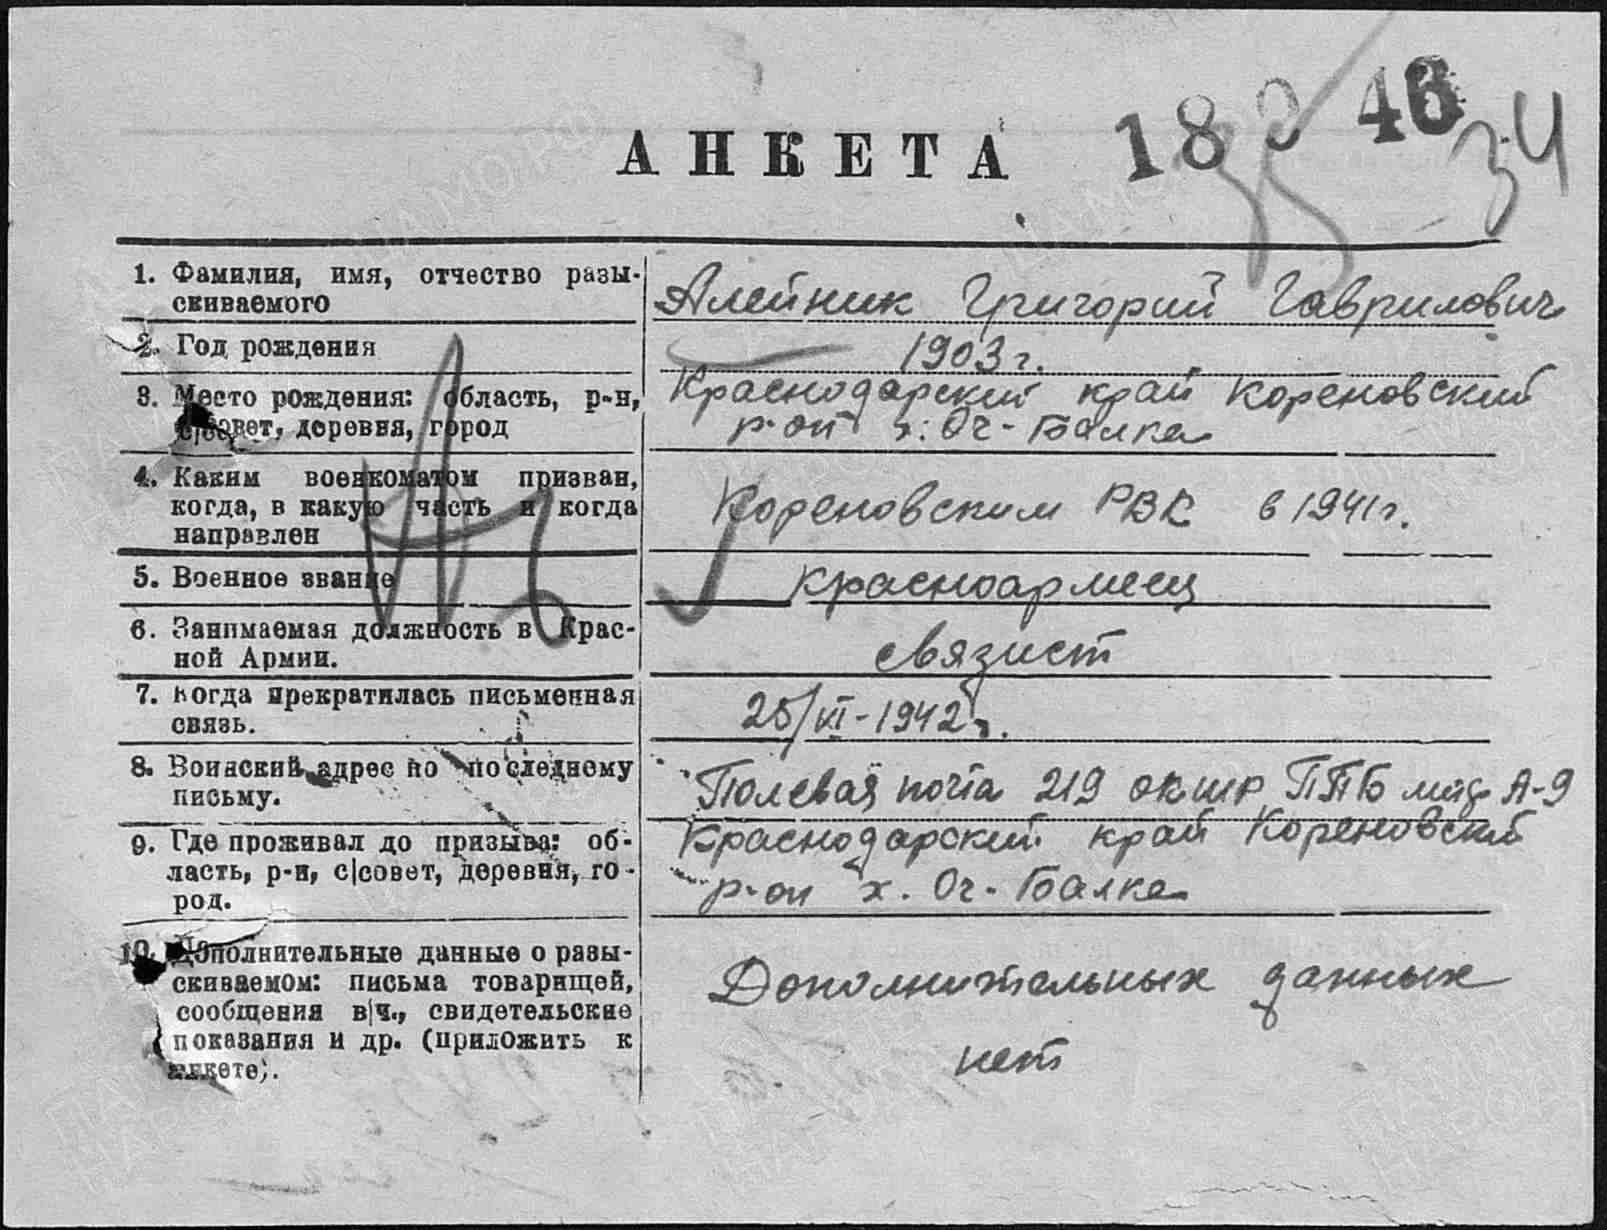 АНКЕТА
18 46
34
1. Фамилия, имя, отчество разы-
скиваемого
Алейник Григорий Гаврилович
2. Год рождения
1903 г.
3. Место рождения: область, р-н,
с|совет, деревня, город
Краснодарский край Кореновский
р-он х. Оч-Балка
4. Каким военкоматом призван,
когда, в какую часть и когда
направлен
Кореновским РВК в 1941 г.
5. Военное звание
красноармеец
6. Занимаемая должность в Крас-
ной Армии.
связист
7. Когда прекратилась письменная
связь.
25/VI-1942 г.
8. Воинский адрес по последнему
письму.
Полевая почта 219 ПТБ А-9
9. Где проживал до призыва: об-
ласть, р-н, с|совет, деревня, го-
род.
Краснодарский край Кореновский
р-он х. Оч-Балка
10. Дополнительные данные о разы-
скиваемом: письма товарищей,
сообщения в|ч., свидетельские
показания и др. (приложить к
анкете).
Дополнительных данных
нет